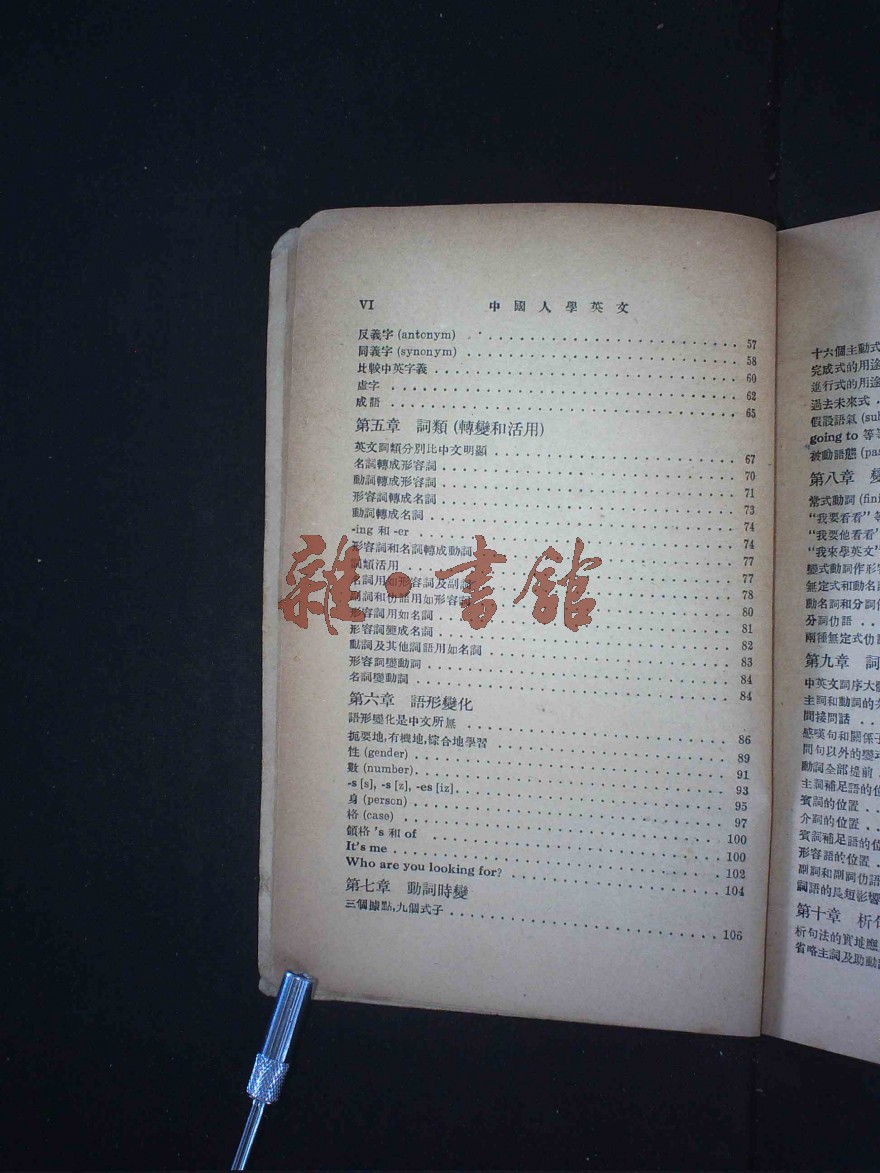 VI 中國人學英文
反義字 (antonym) 57
同義字 (synonym) 58
比較中英字義 60
虛字 62
成語 65
第五章 詞類 (轉變和活用)
英文詞類分別比中文明顯 67
名詞轉成形容詞 70
動詞轉成形容詞 71
形容詞轉成名詞 73
動詞轉成名詞 74
-ing 和 -er 74
形容詞和名詞轉成動詞 77
詞類活用 77
名詞用如形容詞及副詞 78
副詞和仂語用如形容詞 80
形容詞用如名詞 81
形容詞變成名詞 82
動詞及其他詞語用如名詞 83
形容詞變動詞 84
名詞變動詞 84
第六章 語形變化
語形變化是中文所無 86
扼要地,有機地,綜合地學習 89
性 (gender) 91
數 (number) 93
-s [s], -s [z], -es [iz] 95
身 (person) 97
格 (case) 100
領格 's 和 of 100
It's me 102
Who are you looking for? 104
第七章 動詞時變
三個據點,九個式子 106
十六個主動式
完成式的用途
進行式的用途
過去未來式
假設語氣 (sub
going to 等等
被動語態 (pas
第八章 變
常式動詞 (fini
"我要看看" 等
"我要他看看"
"我來學英文"
變式動詞作形容
無定式和動名詞
動名詞和分詞
分詞仂語
兩種無定式仂語
第九章 詞
中英文詞序大體
主詞和動詞的
間接問話
感嘆句和關係子
問句以外的變式
動詞全部提前
主詞補足語的位
賓詞的位置
介詞的位置
賓詞補足語的位
形容語的位置
副詞和副詞仂語
詞語的長短影響
第十章 析句
析句法的實地應
省略主詞及助動詞
雜·書館